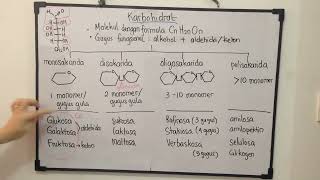 Karbohidrat
• Molekul dengan formula CnH2nOn
• Gugus fungsional : alkohol + aldehida/keton
monosakarida disakarida oligosakarida polisakarida
1 monomer/ gugus gula
2 monomer/ gugus gula
3-10 monomer
>10 monomer
Glukosa
Galaktosa
} aldehida
Fruktosa → keton
sukrosa
laktosa
maltosa
Rafinosa (3 gugus)
Stakiosa (4 gugus)
Verbaskosa
(5 gugus)
amilosa
amilopektin
selulosa
Glikogen